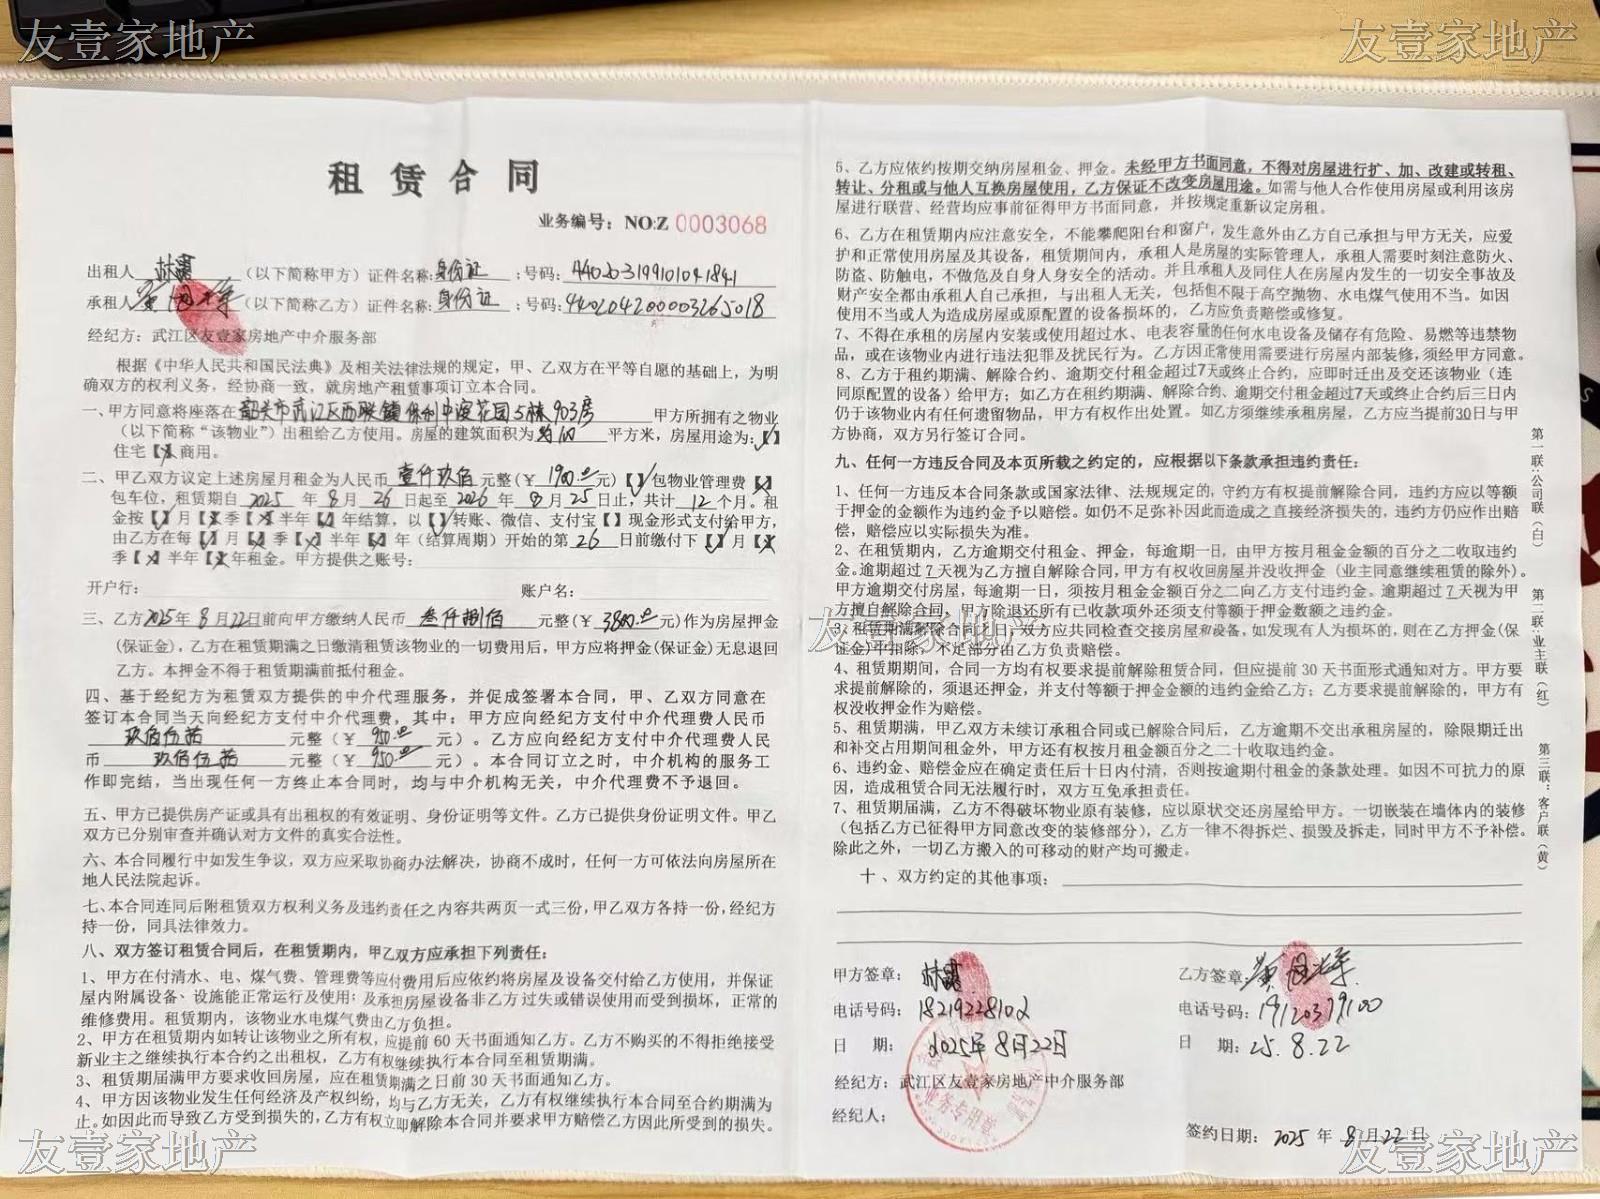 友壹家地产
友壹家地产
租赁合同
业务编号：NO:Z 0003068
出租人 林露 （以下简称甲方）证件名称：身份证 ；号码：440203199101041841
承租人 （以下简称乙方）证件名称：身份证 ；号码：440204200003265018
经纪方：武江区友壹家房地产中介服务部
根据《中华人民共和国民法典》及相关法律法规的规定，甲、乙双方在平等自愿的基础上，为明
确双方的权利义务，经协商一致，就房地产租赁事项订立本合同。
一、甲方同意将座落在 韶关市武江区西联镇保利中宸花园5栋903房 甲方所拥有之物业
（以下简称“该物业”）出租给乙方使用。房屋的建筑面积为 约100 平方米，房屋用途为：【✓】
住宅【✗】商用。
二、甲乙双方议定上述房屋月租金为人民币 壹仟玖佰 元整（￥ 1900.00 元）【✓】包物业管理费【✗】
包车位，租赁期自 2025 年 8 月 26 日起至 2026 年 8 月 25 日止，共计 12 个月。租
金按【✓】月【✗】季【✗】半年【✗】年结算，以【✓】转账、微信、支付宝【】现金形式支付给甲方，
由乙方在每【✓】月【✗】季【✗】半年【✗】年（结算周期）开始的第 26 日前缴付下【✓】月【✗】
季【✗】半年【✗】年租金。甲方提供之账号：
开户行： 账户名：
三、乙方2025年 8 月22日前向甲方缴纳人民币 叁仟捌佰 元整（￥ 3800.00 元）作为房屋押金
（保证金），乙方在租赁期满之日缴清租赁该物业的一切费用后，甲方应将押金(保证金)无息退回
乙方。本押金不得于租赁期满前抵付租金。
四、基于经纪方为租赁双方提供的中介代理服务，并促成签署本合同，甲、乙双方同意在
签订本合同当天向经纪方支付中介代理费，其中：甲方应向经纪方支付中介代理费人民币
玖佰伍拾 元整（￥ 950.00 元）。乙方应向经纪方支付中介代理费人民
币 玖佰伍拾 元整（￥ 950.00 元）。本合同订立之时，中介机构的服务工
作即完结，当出现任何一方终止本合同时，均与中介机构无关，中介代理费不予退回。
五、甲方已提供房产证或具有出租权的有效证明、身份证明等文件。乙方已提供身份证明文件。甲乙
双方已分别审查并确认对方文件的真实合法性。
六、本合同履行中如发生争议，双方应采取协商办法解决，协商不成时，任何一方可依法向房屋所在
地人民法院起诉。
七、本合同连同后附租赁双方权利义务及违约责任之内容共两页一式三份，甲乙双方各持一份，经纪方
持一份，同具法律效力。
八、双方签订租赁合同后，在租赁期内，甲乙双方应承担下列责任：
1、甲方在付清水、电、煤气费、管理费等应付费用后应依约将房屋及设备交付给乙方使用，并保证
屋内附属设备、设施能正常运行及使用；及承担房屋设备非乙方过失或错误使用而受到损坏，正常的
维修费用。租赁期内，该物业水电煤气费由乙方负担。
2、甲方在租赁期内如转让该物业之所有权，应提前60天书面通知乙方。乙方不购买的不得拒绝接受
新业主之继续执行本合约之出租权，乙方有权继续执行本合同至租赁期满。
3、租赁期届满甲方要求收回房屋，应在租赁期满之日前30天书面通知乙方。
4、甲方因该物业发生任何经济及产权纠纷，均与乙方无关，乙方有权继续执行本合同至合约期满为
止。如因此而导致乙方受到损失的，乙方有权立即解除本合同并要求甲方赔偿乙方因此所受到的损失。
5、乙方应依约按期交纳房屋租金、押金。未经甲方书面同意，不得对房屋进行扩、加、改建或转租、
转让、分租或与他人互换房屋使用，乙方保证不改变房屋用途。如需与他人合作使用房屋或利用该房
屋进行联营、经营均应事前征得甲方书面同意，并按规定重新议定房租。
6、乙方在租赁期内应注意安全，不能攀爬阳台和窗户，发生意外由乙方自己承担与甲方无关，应爱
护和正常使用房屋及其设备，租赁期间内，承租人是房屋的实际管理人，承租人需要时刻注意防火、
防盗、防触电，不做危及自身人身安全的活动。并且承租人及同住人在房屋内发生的一切安全事故及
财产安全都由承租人自己承担，与出租人无关，包括但不限于高空抛物、水电煤气使用不当。如因
使用不当或人为造成房屋或原配置的设备损坏的，乙方应负责赔偿或修复。
7、不得在承租的房屋内安装或使用超过水、电表容量的任何水电设备及储存有危险、易燃等违禁物
品，或在该物业内进行违法犯罪及扰民行为。乙方因正常使用需要进行房屋内部装修，须经甲方同意。
8、乙方于租约期满、解除合约、逾期交付租金超过7天或终止合约，应即时迁出及交还该物业（连
同原配置的设备）给甲方；如乙方在租约期满、解除合约、逾期交付租金超过7天或终止合约后三日内
仍于该物业内有任何遗留物品，甲方有权作出处置。如乙方须继续承租房屋，乙方应当提前30日与甲
方协商，双方另行签订合同。
九、任何一方违反合同及本页所载之约定的，应根据以下条款承担违约责任：
1、任何一方违反本合同条款或国家法律、法规规定的，守约方有权提前解除合同，违约方应以等额
于押金的金额作为违约金予以赔偿。如仍不足弥补因此而造成之直接经济损失的，违约方仍应作出赔
偿，赔偿应以实际损失为准。
2、在租赁期内，乙方逾期交付租金、押金，每逾期一日，由甲方按月租金金额的百分之二收取违约
金。逾期超过7天视为乙方擅自解除合同，甲方有权收回房屋并没收押金（业主同意继续租赁的除外）。
甲方逾期交付房屋，每逾期一日，须按月租金金额百分之二向乙方支付违约金。逾期超过7天视为甲
方擅自解除合同，甲方除退还所有已收款项外还须支付等额于押金数额之违约金。
3、租赁期满解除合同之日，双方应共同检查交接房屋和设备，如发现有人为损坏的，则在乙方押金(保
证金)中扣除，不足部分由乙方负责赔偿。
友壹家地产
4、租赁期期间，合同一方均有权要求提前解除租赁合同，但应提前30天书面形式通知对方。甲方要
求提前解除的，须退还押金，并支付等额于押金金额的违约金给乙方；乙方要求提前解除的，甲方有
权没收押金作为赔偿。
5、租赁期满，甲甲乙双方未续订承租合同或已解除合同后，乙方逾期不交出承租房屋的，除限期迁出
和补交占用期间租金外，甲方还有权按月租金额百分之二十收取违约金。
6、违约金、赔偿金应在确定责任后十日内付清，否则按逾期付租金的条款处理。如因不可抗力的原
因，造成租赁合同无法履行时，双方互免承担责任。
7、租赁期届满，乙方不得破坏物业原有装修，应以原状交还房屋给甲方。一切嵌装在墙体内的装修
（包括乙方已征得甲方同意改变的装修部分），乙方一律不得拆烂、损毁及拆走，同时甲方不予补偿。
除此之外，一切乙方搬入的可移动的财产均可搬走。
十、双方约定的其他事项：
甲方签章：林露
电话号码：18219228102
日 期：2025年8月22日
乙方签章：
电话号码：19120379100
日 期：25.8.22
经纪方：武江区友壹家房地产中介服务部
经纪人：
业务专用章
签约日期：2025 年 8 月 22 日
第一联：公司联（白）
第二联：业主联（红）
第三联：客户联（黄）
友壹家地产
友壹家地产